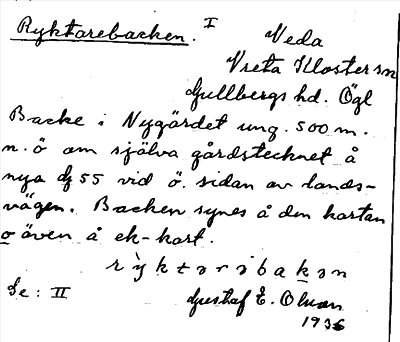 Ryktarebacken. I
Veda
Vreta Kloster sn
Gullbergs hd. Ögl
Backe i Nygärdet ung. 500 m.
n. ö om själva gårdstecknet å
nya dj 55 vid ö. sidan av lands-
vägen. Backen synes å den kartan
o även å ek-kart.
rỳktarəbakən
Se: II
Gustaf E. Olsson
1936